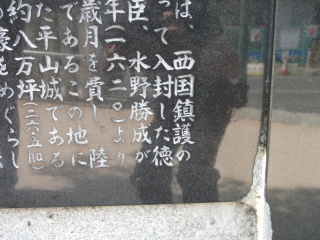 は、西国鎮護の
って入封した徳
臣、水野勝成が
年(一六二〇)より
歳月を費し、陸
であるこの地に
た平山城である
約八万坪
濠をめぐらし